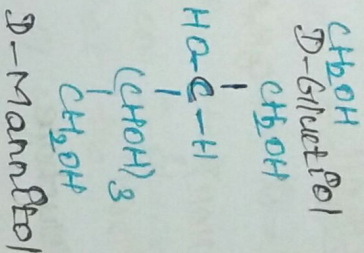 CH₂OH
D-Glucitol
CH₂OH
HO-C-H
(CHOH)₃
CH₂OH
D-Mannitol